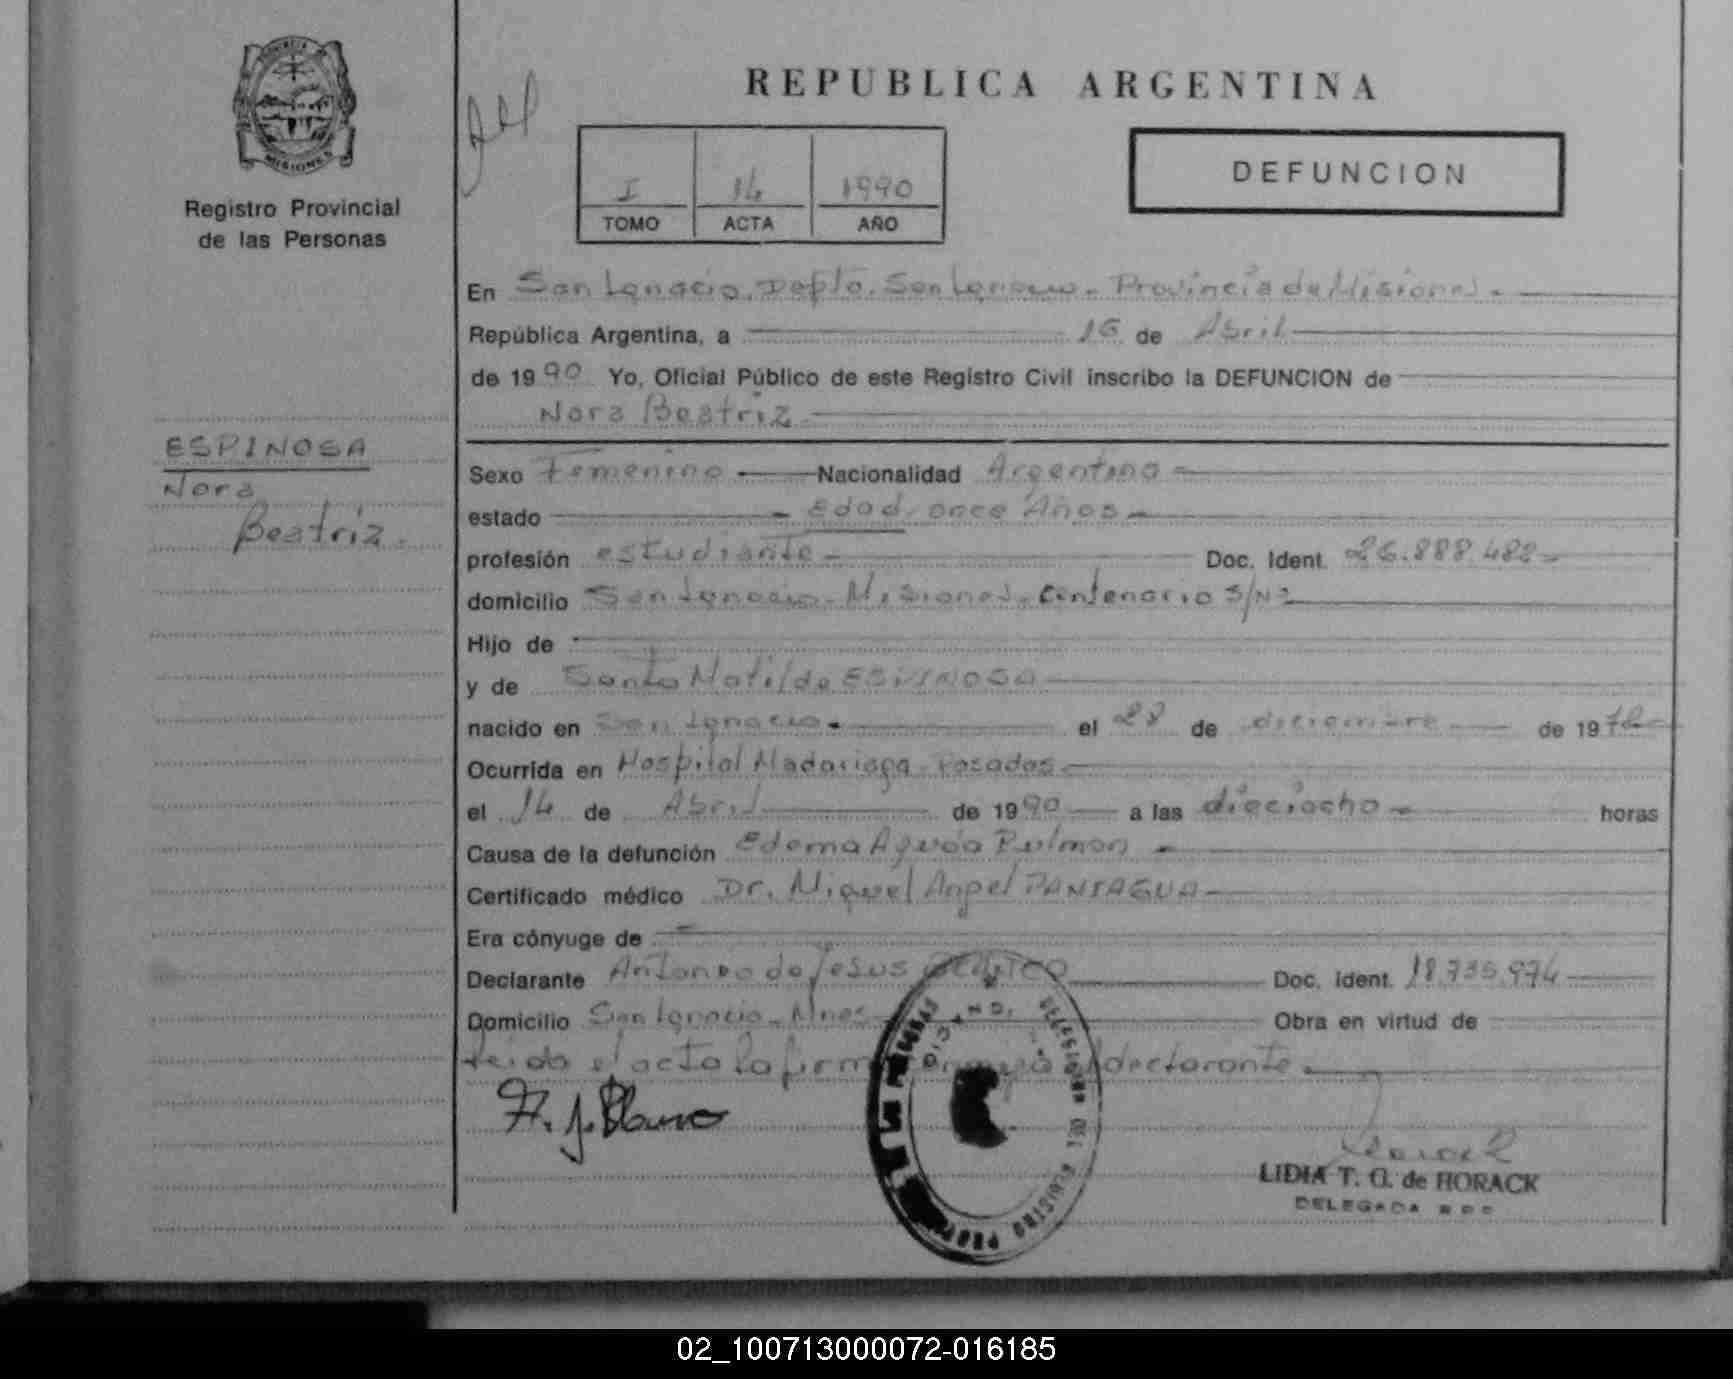 REPUBLICA ARGENTINA
PROVINCIA DE
MISIONES
Registro Provincial
de las Personas
I 14 1990
TOMO ACTA AÑO
DEFUNCION
En San Ignacio, Depto. San Ignacio - Provincia de Misiones -
República Argentina, a 16 de Abril
de 1990 Yo, Oficial Público de este Registro Civil inscribo la DEFUNCION de
Nora Beatriz
ESPINOSA
Nora
Beatriz.
Sexo Femenino Nacionalidad Argentina
estado Edad once Años
profesión estudiante Doc. Ident. 26.888.482
domicilio San Ignacio - Misiones - Centenario S/Nº
Hijo de
y de Santa Matilde ESPINOSA
nacido en San Ignacio el 28 de diciembre de 1978
Ocurrida en Hospital Madariaga Posadas
el 14 de Abril de 1990 a las dieciocho horas
Causa de la defunción Edema Agudo Pulmon
Certificado médico Dr. Miguel Angel PANIAGUA
Era cónyuge de
Declarante Antonio de Jesus Doc. Ident. 18.735.974
Domicilio San Ignacio - Mnes Obra en virtud de
leida el acta la firma el declarante
A. J. Blanco
LIDIA T. G. de HORACK
DELEGADA
02_100713000072-016185